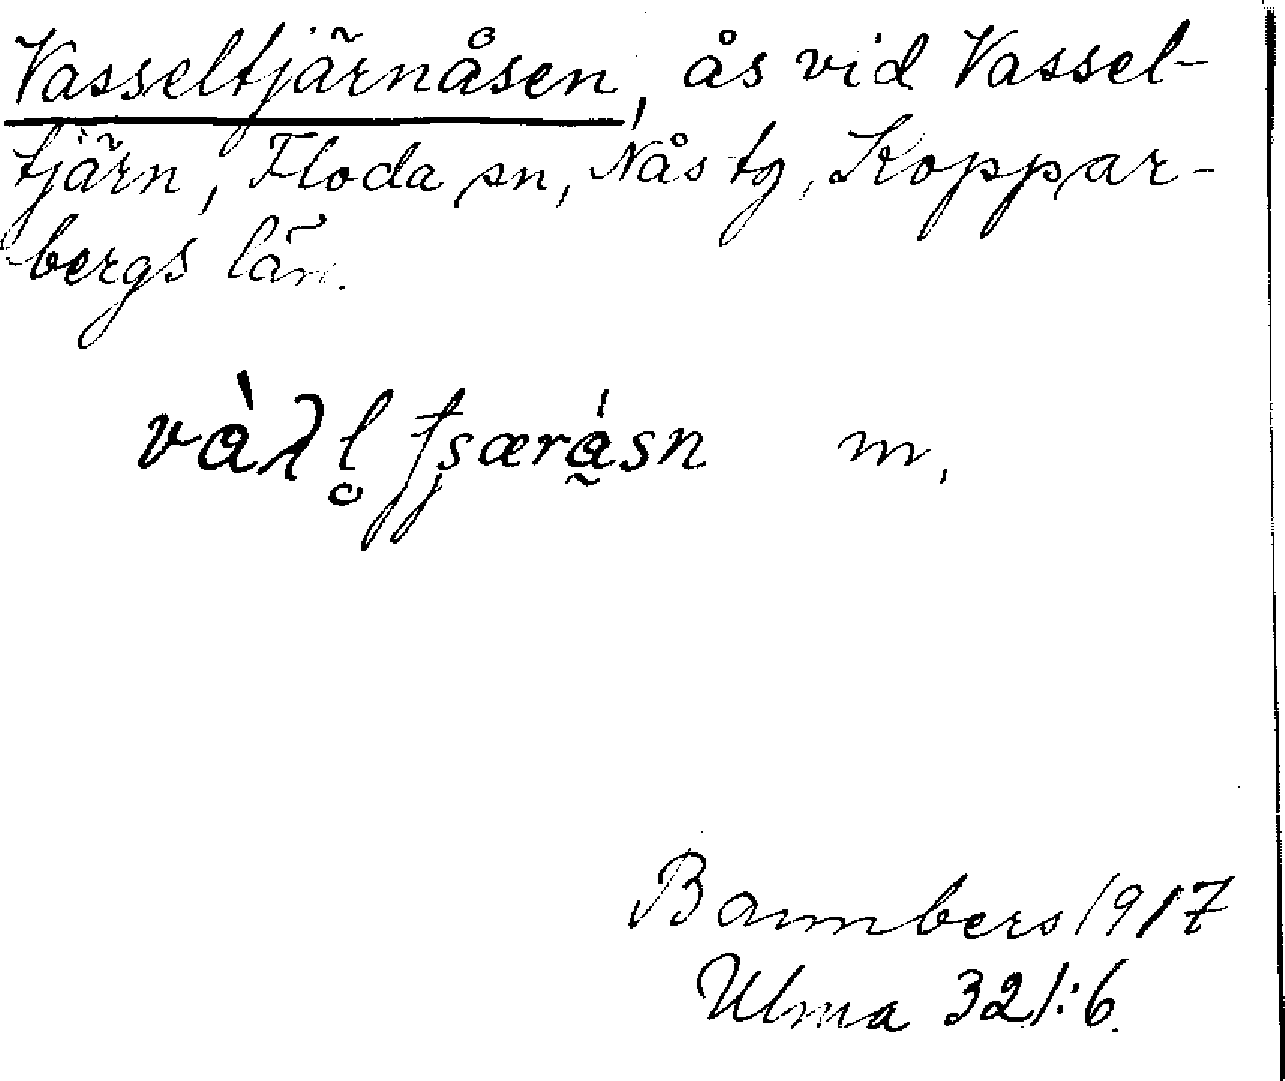 Vasseltjärnåsen, ås vid Vassel-
tjärn, Floda sn, Nås tg, Koppar-
bergs län.
m.
Bannbers 1917
Ulma 321:6.